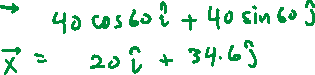 → 40 cos60 î + 40 sin60 ĵ
x⃗ = 20 î + 34.6 ĵ